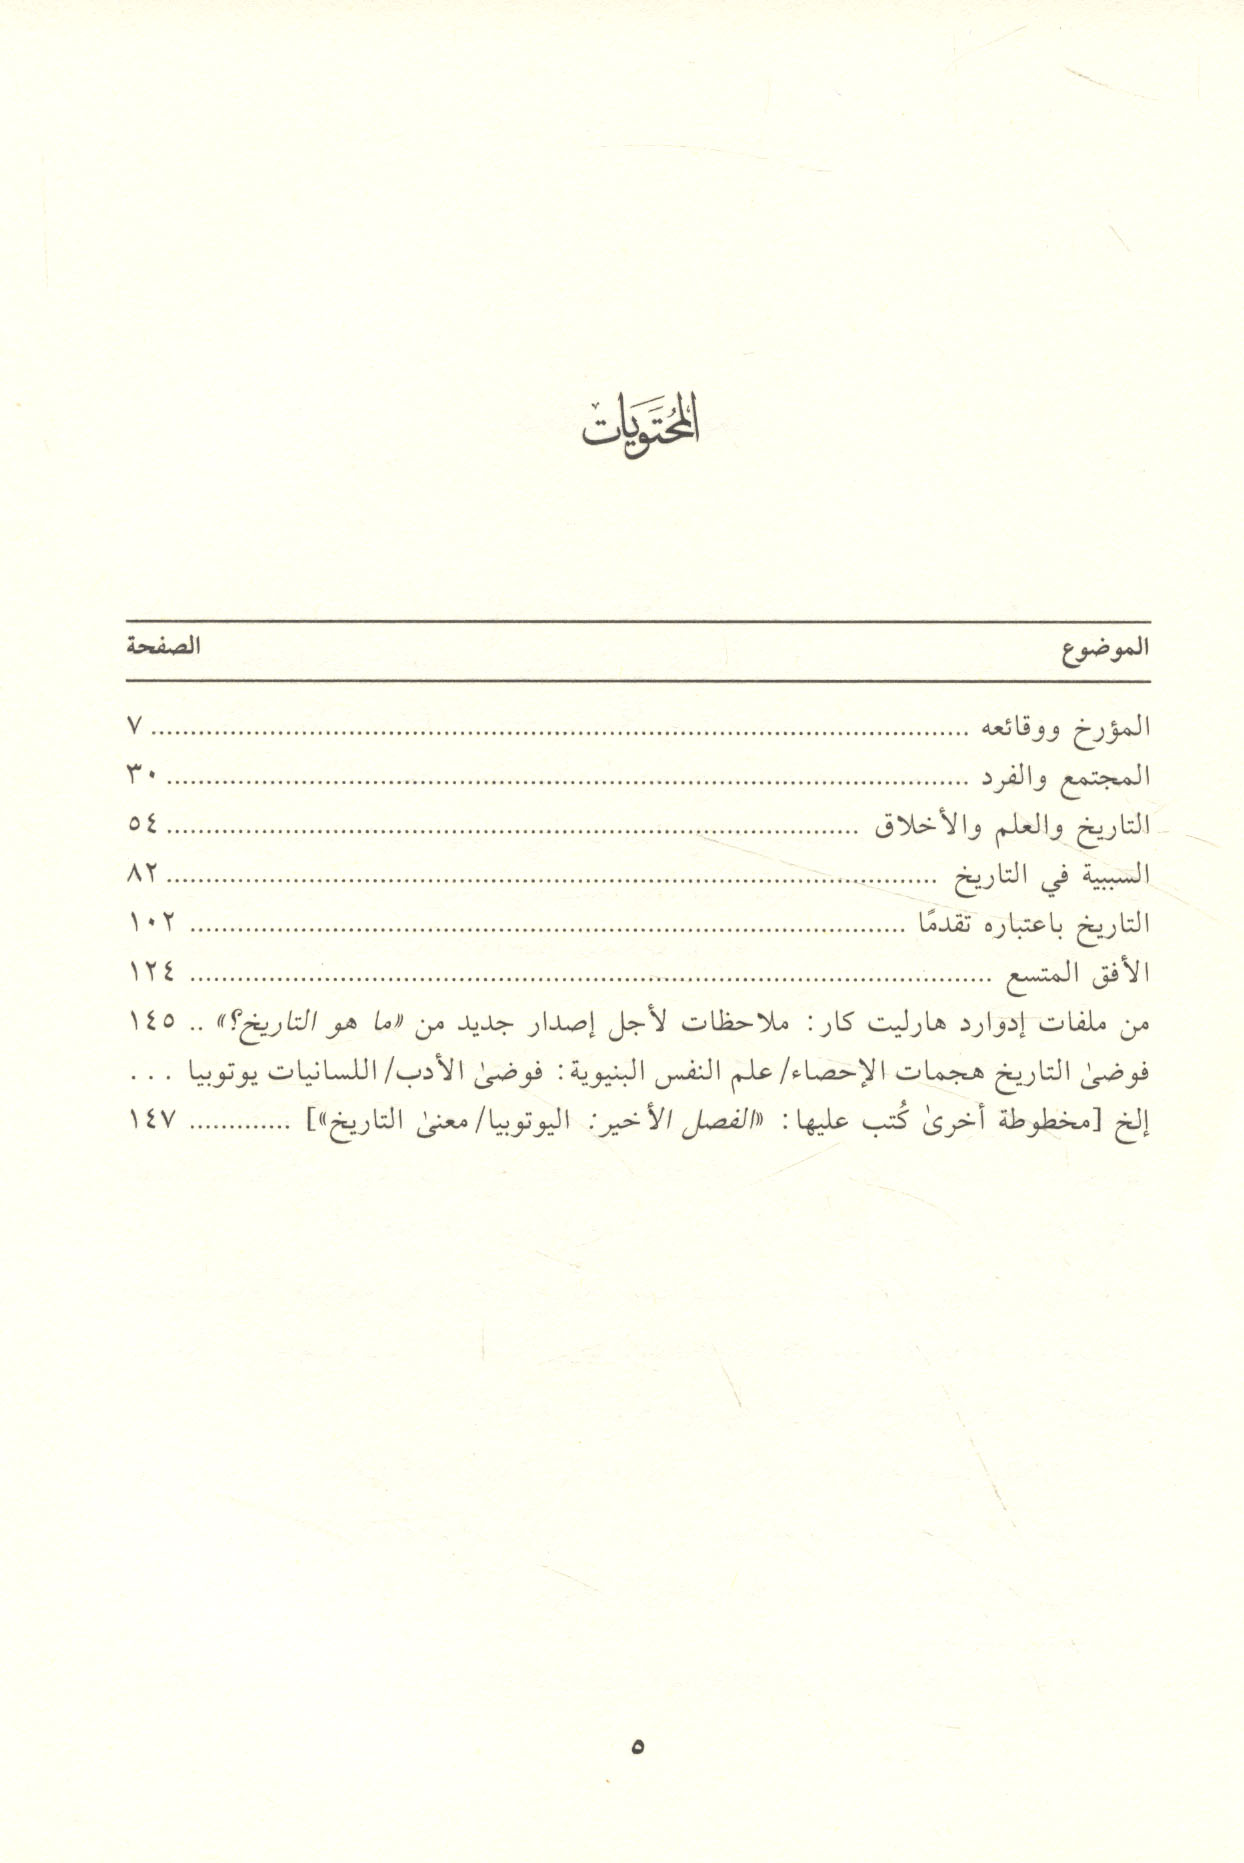 المحتويات
الموضوع الصفحة
المؤرخ ووقائعه ................................ ٧
المجتمع والفرد ................................ ٣٠
التاريخ والعلم والأخلاق ................................ ٥٤
السببية في التاريخ ................................ ٨٢
التاريخ باعتباره تقدمًا ................................ ١٠٢
الأفق المتسع ................................ ١٢٤
من ملفات إدوارد هارليت كار: ملاحظات لأجل إصدار جديد من «ما هو التاريخ؟» .. ١٤٥
فوضىٰ التاريخ هجمات الإحصاء/علم النفس البنيوية: فوضىٰ الأدب/اللسانيات يوتوبيا ...
إلخ [مخطوطة أخرىٰ كُتب عليها: «الفصل الأخير: اليوتوبيا/معنىٰ التاريخ»] ............ ١٤٧
٥